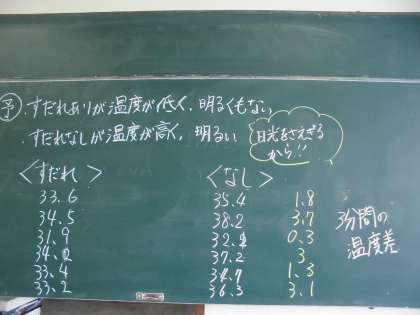 予 すだれありが温度が低く、明るくもない
・すだれなしが温度が高く、明るい
日光をさえぎる
から!!
<すだれ> <なし>
33.6 35.4 1.8
34.5 38.2 3.7
31.9 32.2 0.3
34.2 37.2 3
33.4 34.7 1.3
33.2 36.3 3.1
3分間の
温度差